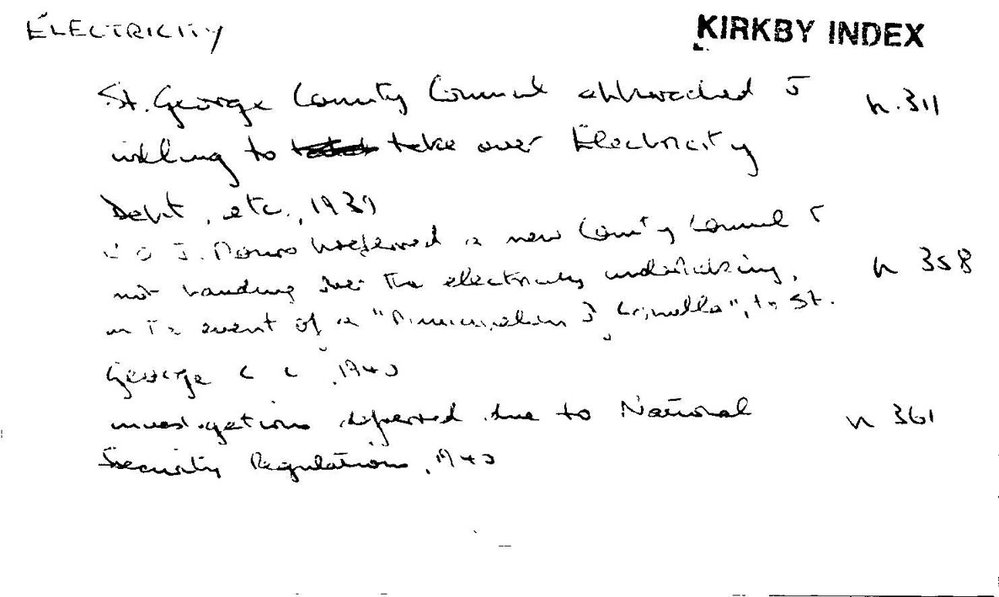 ELECTRICITY
KIRKBY INDEX
St. George County Council approached p. 311
willing to take over Electricity
Dept, etc., 1939
J. Monro preferred a new County Council
not handing over the electricity undertaking, p 358
in event of a "Municipality", to St.
George C C, 1940
investigations deferred due to National p 361
Security Regulations, 1940